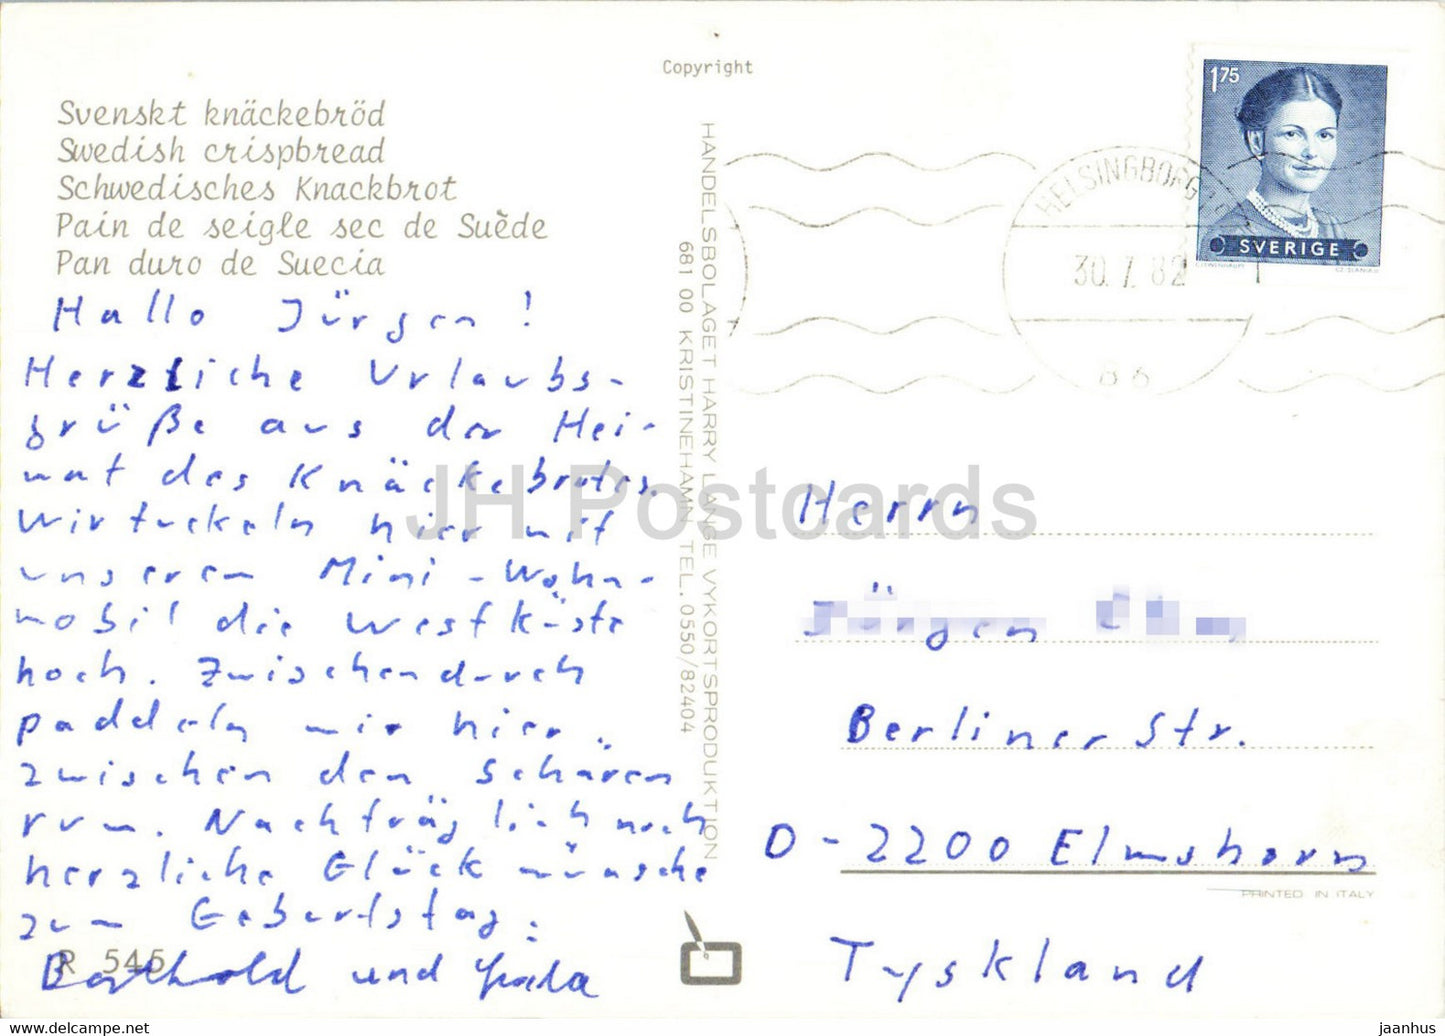 Copyright
Svenskt knäckebröd
Swedish crispbread
Schwedisches Knackbrot
Pain de seigle sec de Suède
Pan duro de Suecia
Hallo Jürgen!
Herzliche Urlaubs-
grüße aus der Hei-
mat des Knäckebrotes.
Wir tuckeln hier mit
unserem Mini-Wohn-
mobil die Westküste
hoch. Zwischendurch
paddeln wir hier
zwischen den Schären
rum. Nachträglich noch
herzliche Glückwünsche
zum Geburtstag.
R 545
Berthold und
HANDELSBOLAGET HARRY LANGE VYKORTSPRODUKTION
681 00 KRISTINEHAMN TEL. 0550/82404
1,75
SVERIGE
HELSINGBORG
30.7.82
JH Postcards
Herrn
Jürgen
Berliner Str.
D-2200 Elmshorn
PRINTED IN ITALY
Tyskland
www.jhpostcard.com
jaanhus